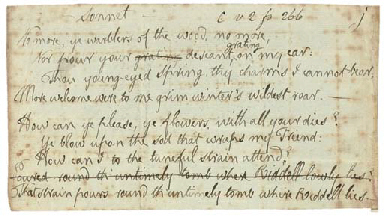 Sonnet C v 2 p 266 j
No more, ye warblers of the wood, no more,
nor pour your descant, grating on my ear:
Thou young-eyed Spring thy charms I cannot bear,
More welcome were to me grim winter's wildest roar.
How can ye please, ye flowers, with all your dies?
Ye blow upon the sod that wraps my Friend:
How can I to the tuneful strain attend?
Poured round th' untimely tomb where Riddell lowly lies
That strain pours round th' untimely tomb where Riddell lies.